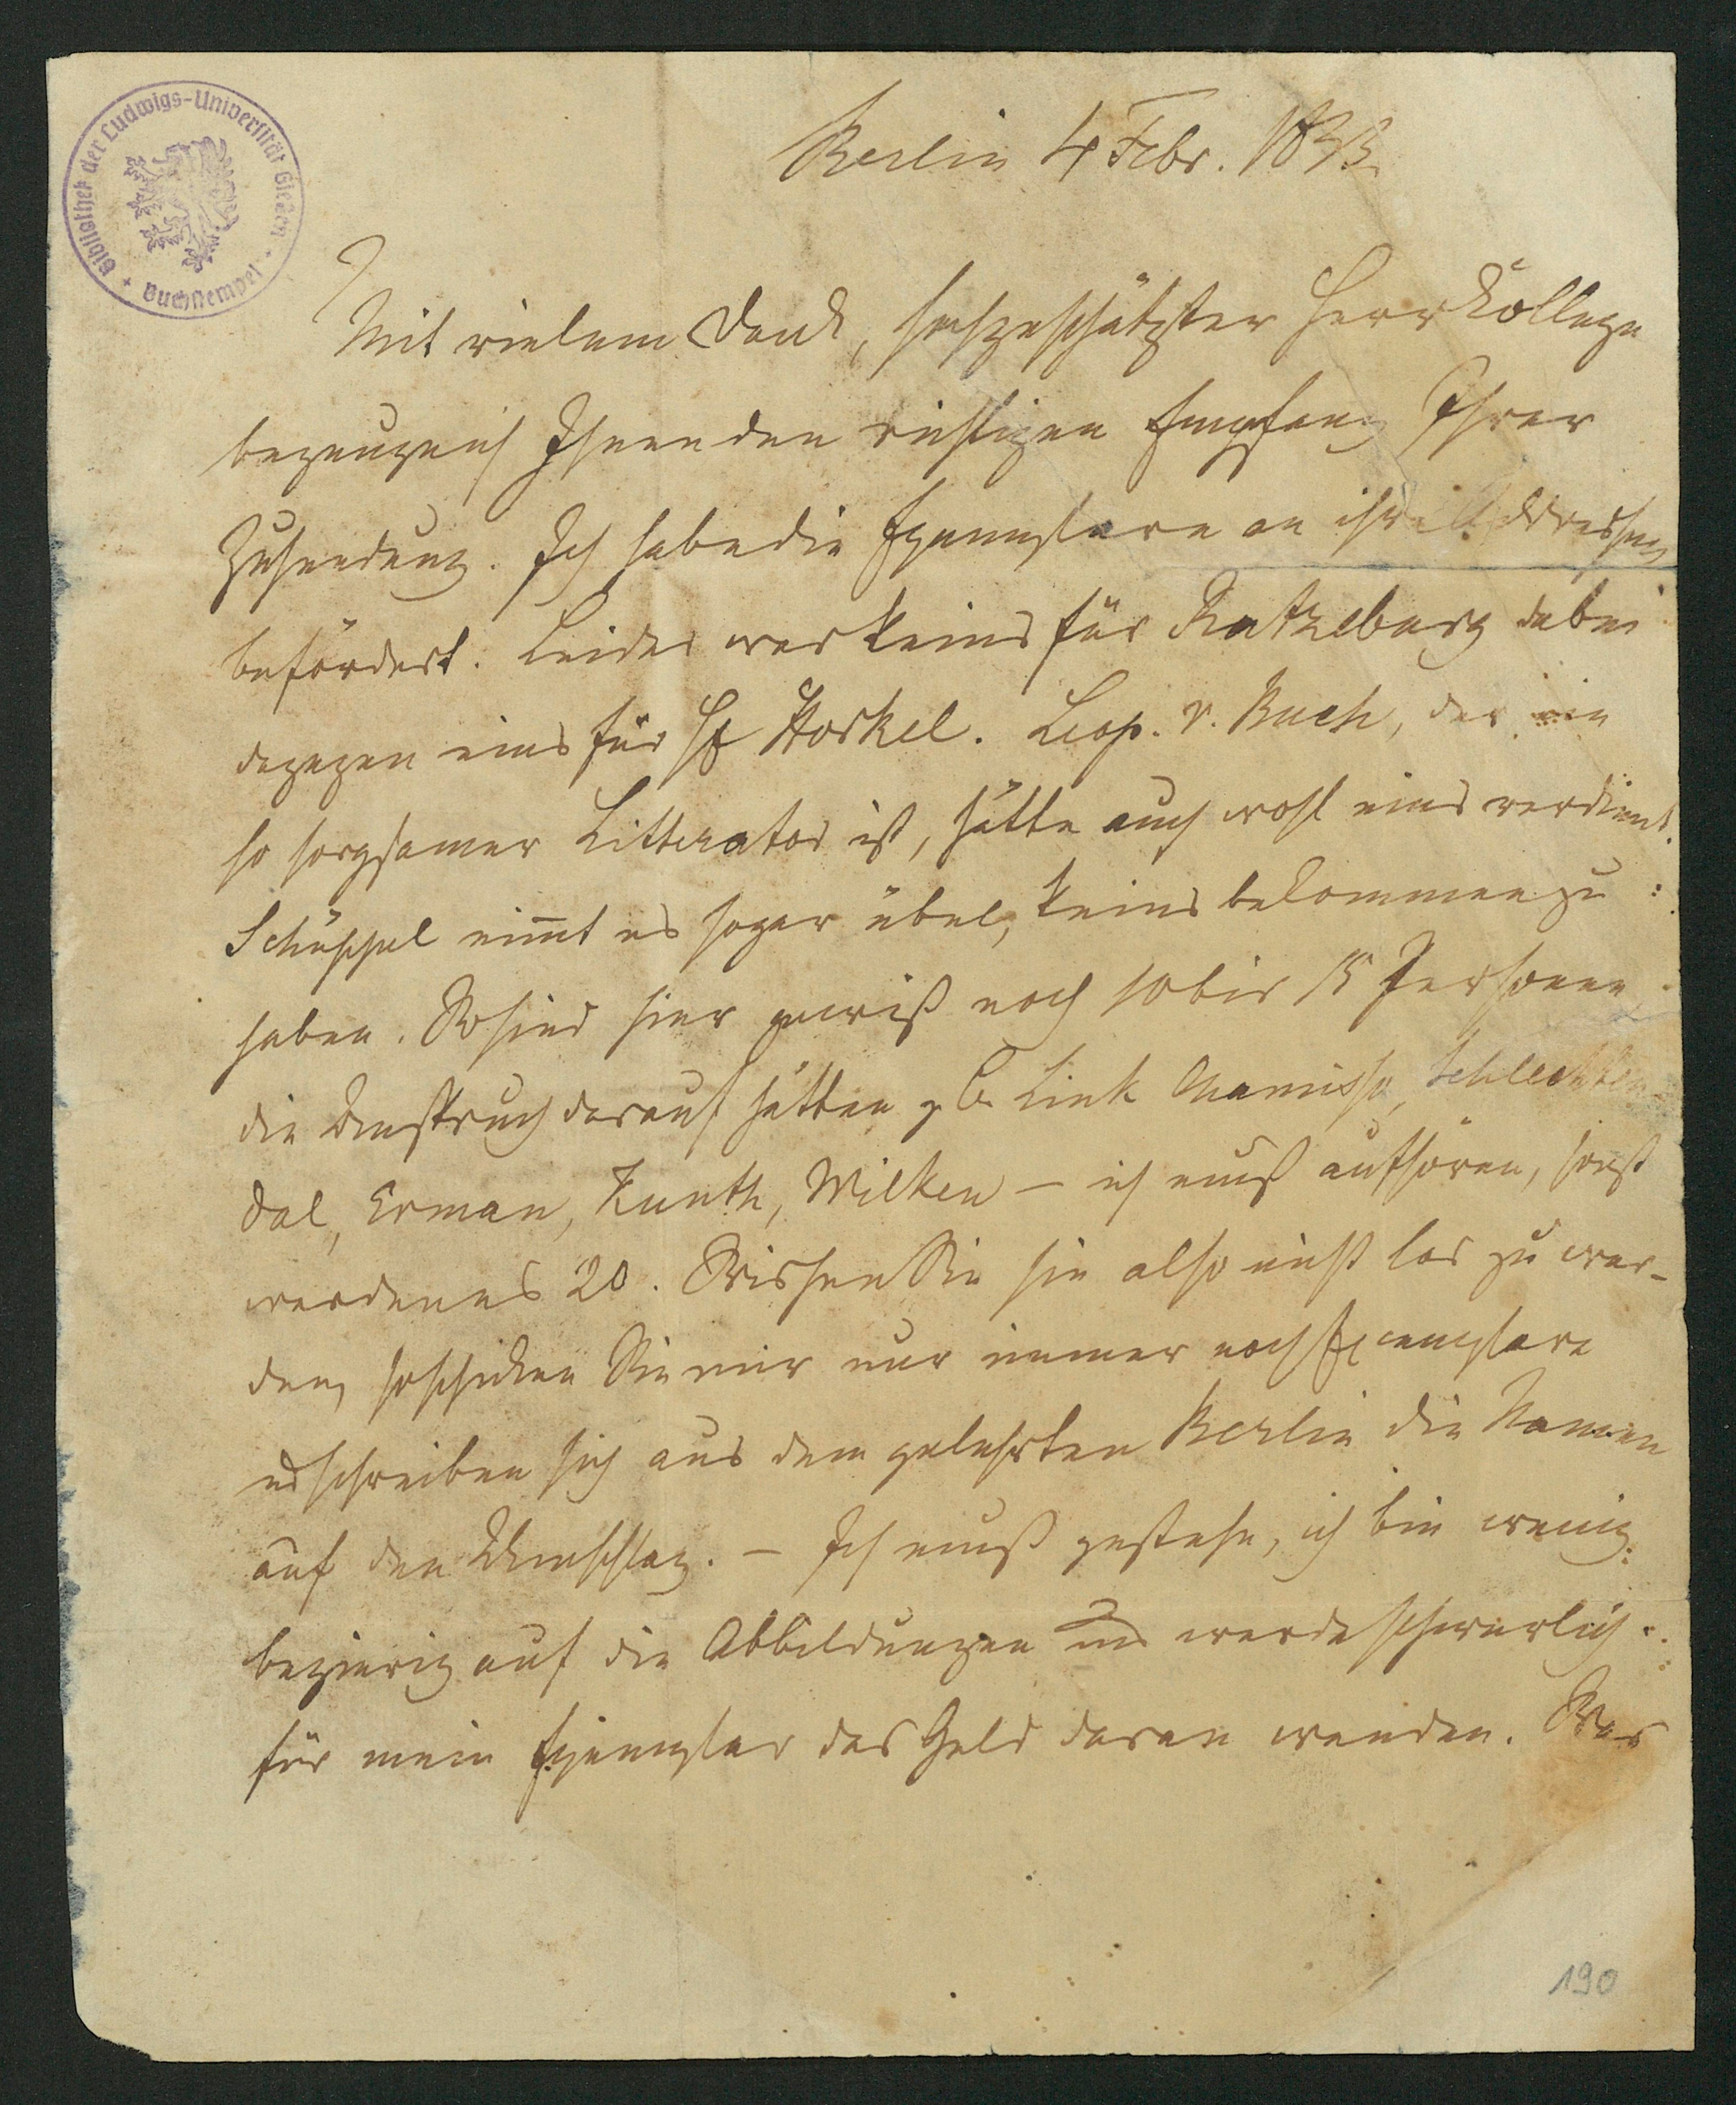 Bibliothek der Ludwigs-Universität Gießen
Buchstempel
Berlin 4 Febr. 1833.
Mit vielem Dank, hochgeschätzter Herr Kollege
bezeuge ich Ihnen den richtigen Empfang Ihrer
Zusendung. Ich habe die Exemplare an ihre
befördert. Leider war keins für Ratzeburg dabei
dagegen eins für H Horkel. Leop. v. Buch, der ein
so sorgsamer Litterator ist, hätte auch wohl eins verdient.
Schüppel nim̅t es sogar übel, keins bekommen zu
haben. So sind hier gewiß noch 10 bis 15 Personen
die Anspruch darauf hätten z B. Link Chamisso, Schlechten
dal, Erman, Kunth, Wilken – ich muß aufhören, sonst
werden es 20. Wissen Sie sie also nicht los zu wer-
den, so schicken Sie mir nur immer noch Exemplare
u schreiben sich aus dem gelehrten Berlin die Namen
auf den Umschlag. – Ich muß gestehn, ich bin wenig
begierig auf die Abbildungen und werde schwerlich
für mein Exemplar das Geld daran wenden. Was
190